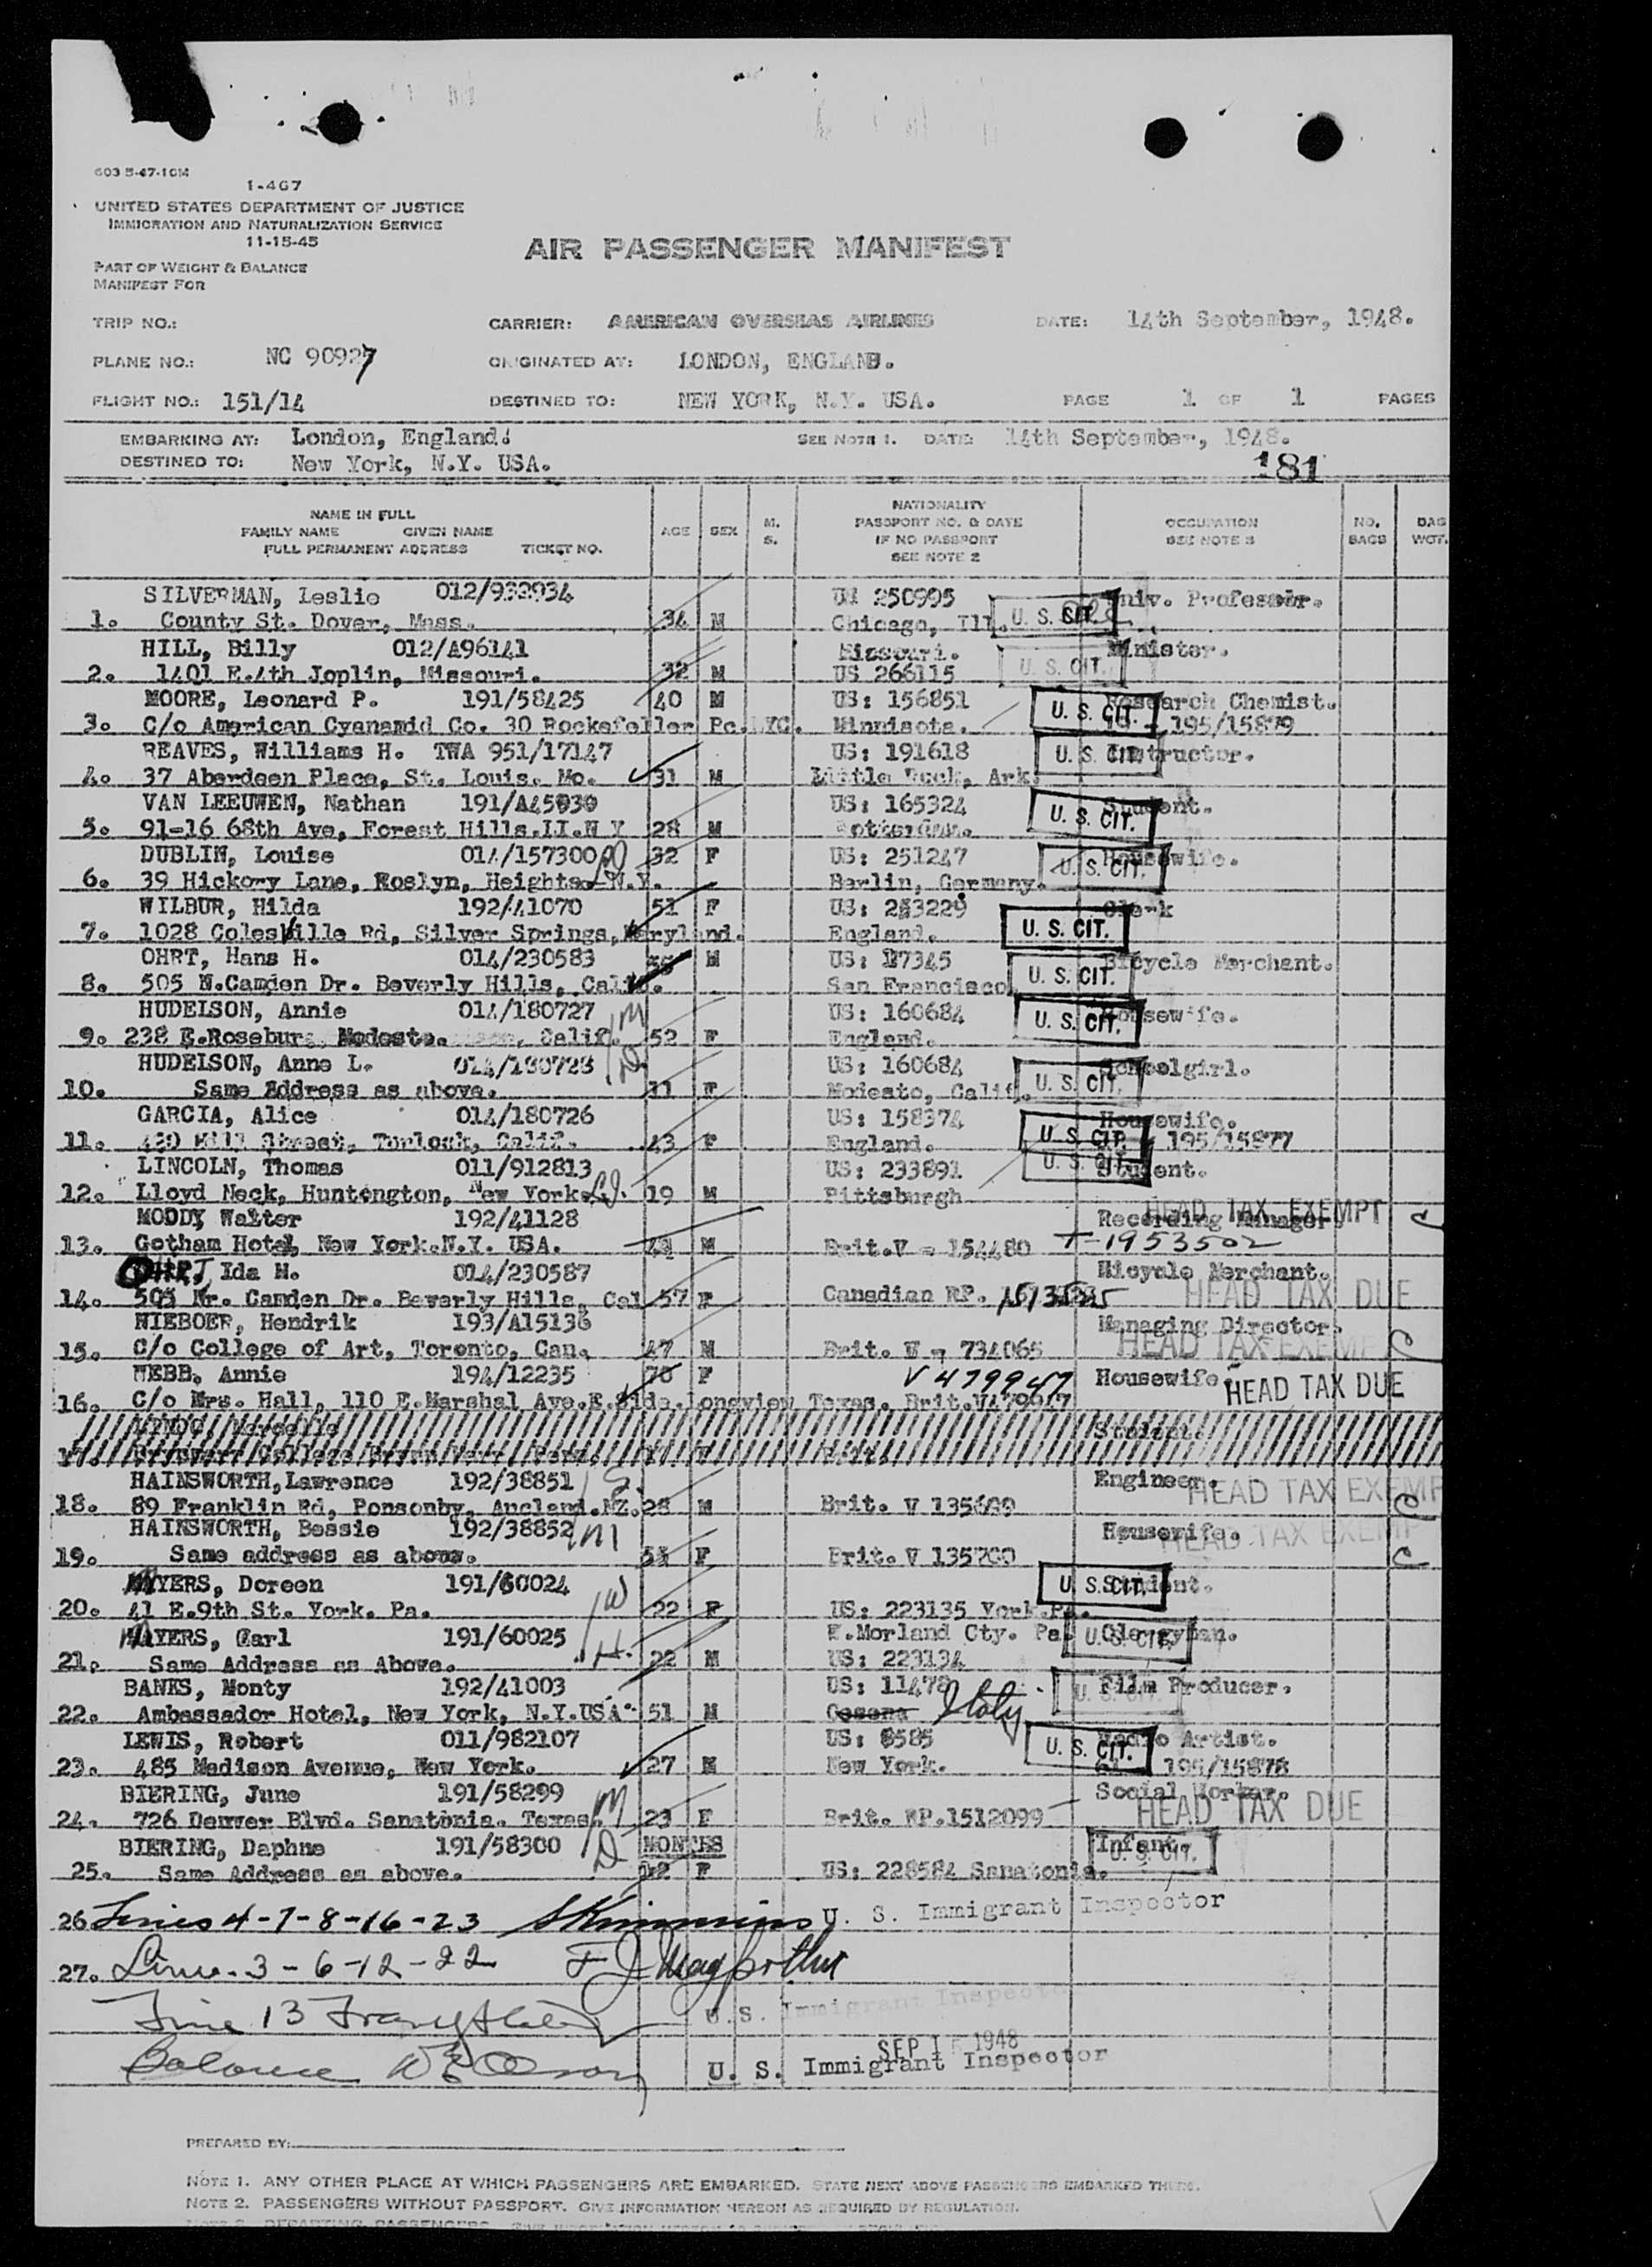 603 5-47-10M
I-467
UNITED STATES DEPARTMENT OF JUSTICE
IMMIGRATION AND NATURALIZATION SERVICE
11-15-45
AIR PASSENGER MANIFEST
PART OF WEIGHT & BALANCE
MANIFEST FOR
TRIP NO.: CARRIER: AMERICAN OVERSEAS AIRLINES DATE: 14th September, 1948.
PLANE NO.: NC 90927 ORIGINATED AT: LONDON, ENGLAND.
FLIGHT NO.: 151/14 DESTINED TO: NEW YORK, N.Y. USA. PAGE 1 OF 1 PAGES
EMBARKING AT: London, England. SEE NOTE 1. DATE: 14th September, 1948.
DESTINED TO: New York, N.Y. USA. 181
NAME IN FULL
FAMILY NAME GIVEN NAME
FULL PERMANENT ADDRESS TICKET NO.
AGE SEX M. S.
NATIONALITY
PASSPORT NO. & DATE
IF NO PASSPORT
SEE NOTE 2
OCCUPATION
SEE NOTE 3
NO. BAGS
BAG WGT.
SILVERMAN, Leslie 012/932934 US 250995 Univ. Professor.
1. County St. Dover, Mass. 34 M Chicago, Ill. U. S. CIT.
HILL, Billy 012/A96141 Missouri. Minister.
2. 1401 E.4th Joplin, Missouri. 32 M US 266115 U. S. CIT.
MOORE, Leonard P. 191/58425 40 M US: 156851 Research Chemist.
3. C/o American Cyanamid Co. 30 Rockefeller Pc. NYC. Minnisota. U. S. CIT. 195/15879
REAVES, Williams H. TWA 951/17147 US: 191618 Instructor.
4. 37 Aberdeen Place, St. Louis. Mo. 31 M Little Rock, Ark. U. S. CIT.
VAN LEEUWEN, Nathan 191/A45030 US: 165324 Student.
5. 91-16 68th Ave, Forest Hills.LI.N Y 28 M Rotterdam. U. S. CIT.
DUBLIN, Louise 014/157300 32 F US: 251247 Housewife.
6. 39 Hickory Lane, Roslyn, Heights. N.Y. Berlin, Germany. U. S. CIT.
WILBUR, Hilda 192/41070 51 F US: 233229 Clerk
7. 1028 Colesville Rd, Silver Springs, Maryland. England. U. S. CIT.
OHRT, Hans H. 014/230583 M US: 17345 Bicycle Merchant.
8. 505 N.Camden Dr. Beverly Hills, Calif. San Francisco U. S. CIT.
HUDELSON, Annie 014/180727 US: 160684 Housewife.
9. 238 E.Roseburg Modesto. Calif. 52 F England. U. S. CIT.
HUDELSON, Anne L. 014/180728 US: 160684 Schoolgirl.
10. Same Address as above. 11 F Modesto, Calif. U. S. CIT.
GARCIA, Alice 014/180726 US: 158374 Housewife.
11. 420 Mill Street, Turlock, Calif. 43 F England. U. S. CIT. 195/15877
LINCOLN, Thomas 011/912813 US: 233891 Student.
12. Lloyd Neck, Huntengton, New York. 19 M Pittsburgh U. S. CIT.
MOODY Walter 192/41128 Recording Manager HEAD TAX EXEMPT C
13. Gotham Hotel, New York.N.Y. USA. M Brit.V - 154480 T-1953502
OHRT, Ida M. 014/230587 Bicycle Merchant.
14. 505 Nr. Camden Dr. Beverly Hills, Cal 57 F Canadian RP. HEAD TAX DUE
NIEBOER, Hendrik 193/A15136 Managing Director.
15. C/o College of Art, Toronto, Can. 47 M Brit. W - 734065 HEAD TAX EXEMPT C
WEBB, Annie 194/12235 70 F V 479947 Housewife.
16. C/o Mrs. Hall, 110 E.Marshal Ave.E.Side.Longview Texas. Brit.V479947 HEAD TAX DUE
Student.
17.
HAINSWORTH, Lawrence 192/38851 Engineer.
18. 89 Franklin Rd, Ponsonby, Aucland.NZ. 28 M Brit. V 135699 HEAD TAX EXEMP C
HAINSWORTH, Bessie 192/38852 M Housewife.
19. Same address as above. F Brit. V 135700 HEAD TAX EXEMP C
MYERS, Doreen 191/60024 W Student.
20. 41 E.9th St. York. Pa. 22 F US: 223135 York.Pa. U. S. CIT.
MYERS, Carl 191/60025 H. W.Morland Cty. Pa. Clergyman.
21. Same Address as Above. 22 M US: 223134 U. S. CIT.
BANKS, Monty 192/41003 US: 11478 Film Producer.
22. Ambassador Hotel, New York, N.Y.USA. 51 M Cesena Italy U. S. CIT.
LEWIS, Robert 011/982107 US: 8585 Radio Artist.
23. 485 Madison Avenue, New York. 27 M New York. U. S. CIT. 195/15878
BIERING, June 191/58299 M Social Worker.
24. 726 Denver Blvd. Sanatonia. Texas. 23 F Brit. RP.1512099 HEAD TAX DUE
BIERING, Daphne 191/58300 D MONTHS Infant.
25. Same Address as above. F US: 228584 Sanatonia. U. S. CIT.
26. Lines 4-7-8-16-23 U. S. Immigrant Inspector
27. Line. 3-6-12-22
U. S. Immigrant Inspector
Line 13
SEP 15 1948
Balance U. S. Immigrant Inspector
PREPARED BY:
NOTE 1. ANY OTHER PLACE AT WHICH PASSENGERS ARE EMBARKED. STATE NEXT ABOVE PASSENGERS EMBARKED THERE.
NOTE 2. PASSENGERS WITHOUT PASSPORT. GIVE INFORMATION HEREON AS REQUIRED BY REGULATION.